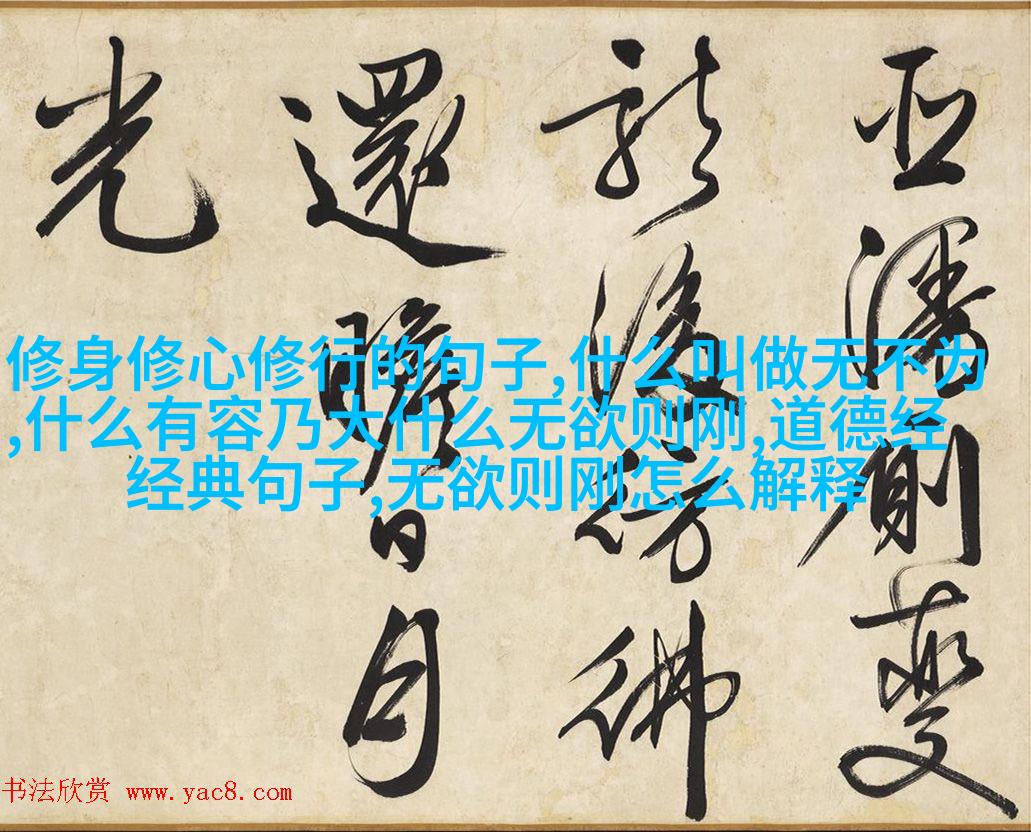 潘側
後彷彿
還瞻日月
光
修身修心修行的句子,什么叫做无不为
,什么有容乃大什么无欲则刚,道德经
经典句子,无欲则刚怎么解释
书法欣赏 www.yac8.com